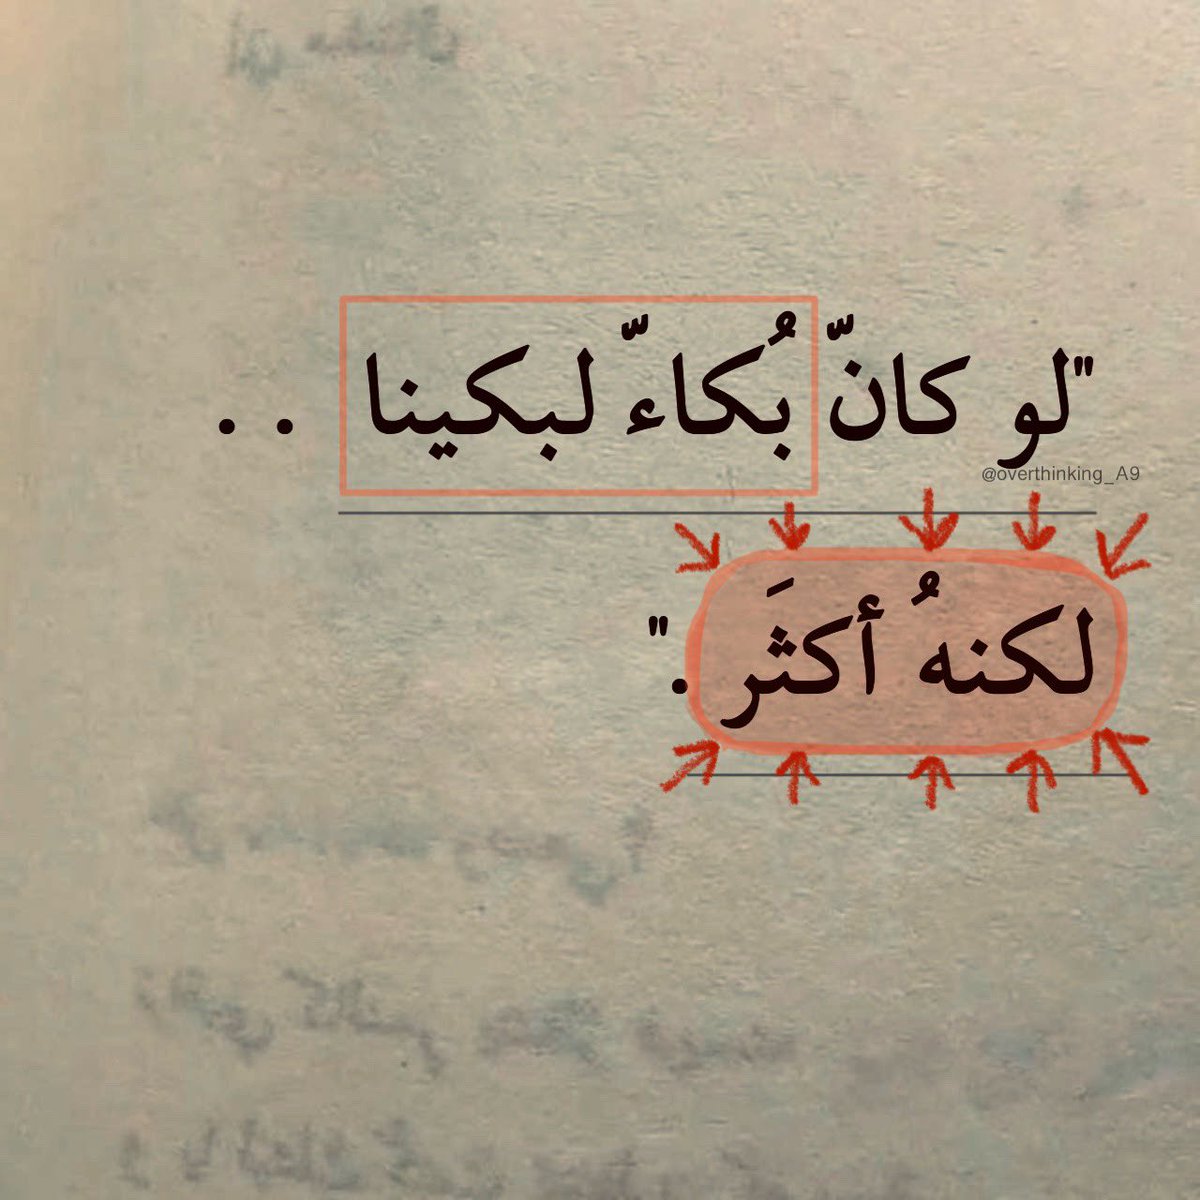 "لو كانّ بُكاءّ لبكينا . .
@overthinking_A9
لكنهُ أكثَر ."